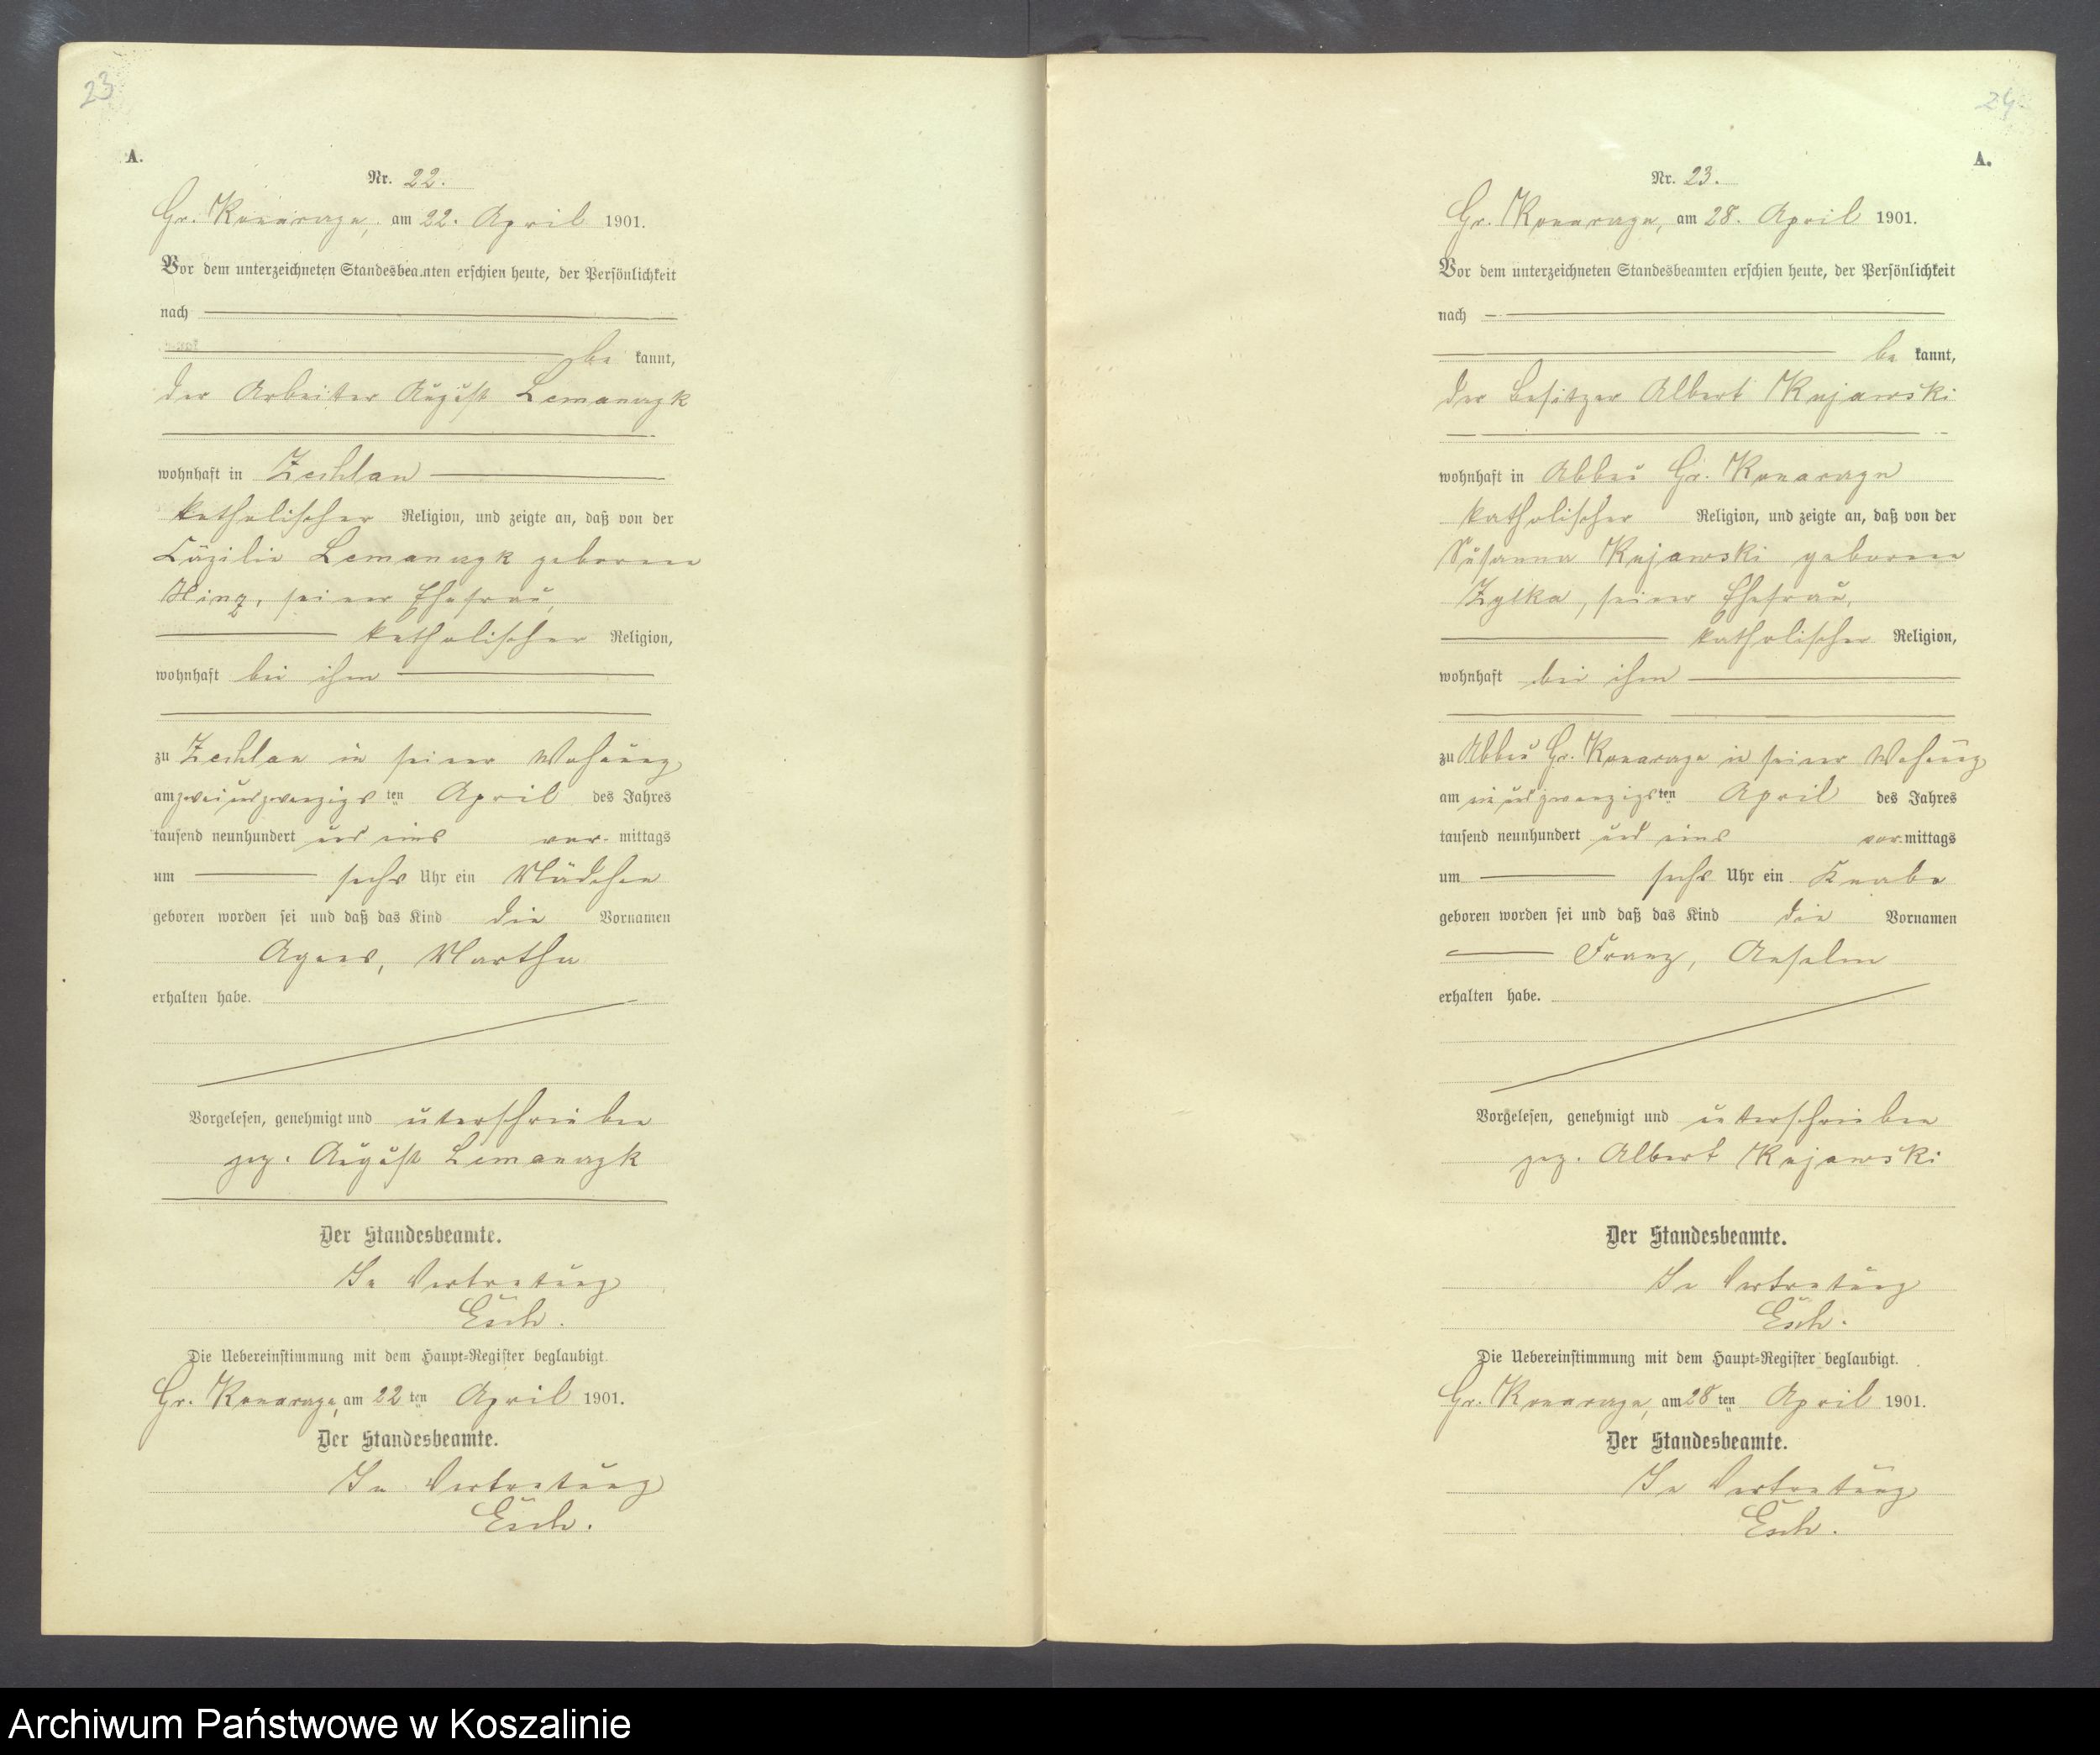 23
A.
Nr. 22.
Gr. Konarczyn, am 22. April 1901.
Vor dem unterzeichneten Standesbeamten erschien heute, der Persönlichkeit
nach
be kannt,
der Arbeiter August Lemanczyk
wohnhaft in Zechlau
katholischer Religion, und zeigte an, daß von der
Cäzilie Lemanczyk geborene
Hinz, seiner Ehefrau,
katholischer Religion,
wohnhaft bei ihm
zu Zechlau in seiner Wohnung
am zwei und zwanzigsten April des Jahres
tausend neunhundert und eins vor mittags
um sechs Uhr ein Mädchen
geboren worden sei und daß das Kind die Vornamen
Agnes, Martha
erhalten habe.
Vorgelesen, genehmigt und unterschrieben
gez. August Lemanczyk
Der Standesbeamte.
In Vertretung
Esch.
Die Uebereinstimmung mit dem Haupt-Register beglaubigt.
Gr. Konarczyn, am 22 ten April 1901.
Der Standesbeamte.
In Vertretung
Esch.
24
A.
Nr. 23.
Gr. Konarczyn, am 28. April 1901.
Vor dem unterzeichneten Standesbeamten erschien heute, der Persönlichkeit
nach
be kannt,
der Besitzer Albert Kujawski
wohnhaft in Abbau Gr. Konarczyn
katholischer Religion, und zeigte an, daß von der
Susanna Kujawski geborene
Zylka, seiner Ehefrau,
katholischer Religion,
wohnhaft bei ihm
zu Abbau Gr. Konarczyn in seiner Wohnung
am ein und zwanzigsten April des Jahres
tausend neunhundert und eins vor mittags
um sechs Uhr ein Knabe
geboren worden sei und daß das Kind die Vornamen
Franz, Anselm
erhalten habe.
Vorgelesen, genehmigt und unterschrieben
gez. Albert Kujawski
Der Standesbeamte.
In Vertretung
Esch.
Die Uebereinstimmung mit dem Haupt-Register beglaubigt.
Gr. Konarczyn, am 28 ten April 1901.
Der Standesbeamte.
In Vertretung
Esch.
Archiwum Państwowe w Koszalinie